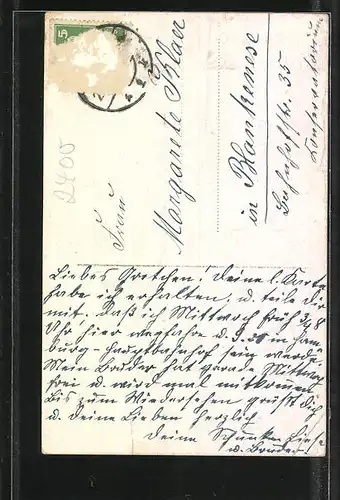 Frau
Margarete Blaer
in Blankenese
Bahnhofstr. 35
Conservatorium
2400
5
Liebes Gretchen! Deine l. Karte
habe ich erhalten, u. teile Dir
mit. daß ich Mittwoch früh 3/4 8
Uhr hier wegfahre u. 9.50 in Ham
burg-Hauptbahnhof sein werde.
Mein Bruder hat gerade Mittwoch
frei u. wird mal mitkommen
Bis zum Wiedersehen grüßt Dich
u. Deine Lieben herzlich
Deine
u. Bruder.